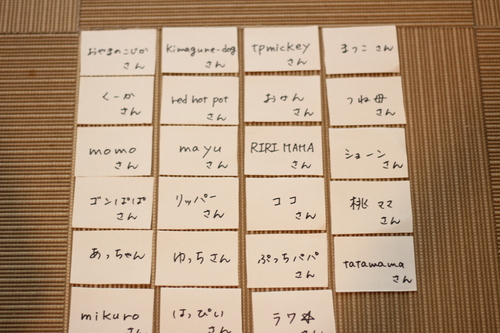 おやまのこぴか
さん
kimagure-dog
さん
tpmickey
さん
まっこ さん
くーが
さん
red hot pot
さん
おけん
さん
つね母
さん
momo
さん
mayu
さん
RIRI MAMA
さん
ショーン
さん
ゴンぱぱ
さん
リッパー
さん
ココ
さん
桃 ママ
さん
あっちゃん
ゆっち さん
ぷっちパパ
さん
tatamama
さん
mikuro
さん
はっぴい
さん
ラワ